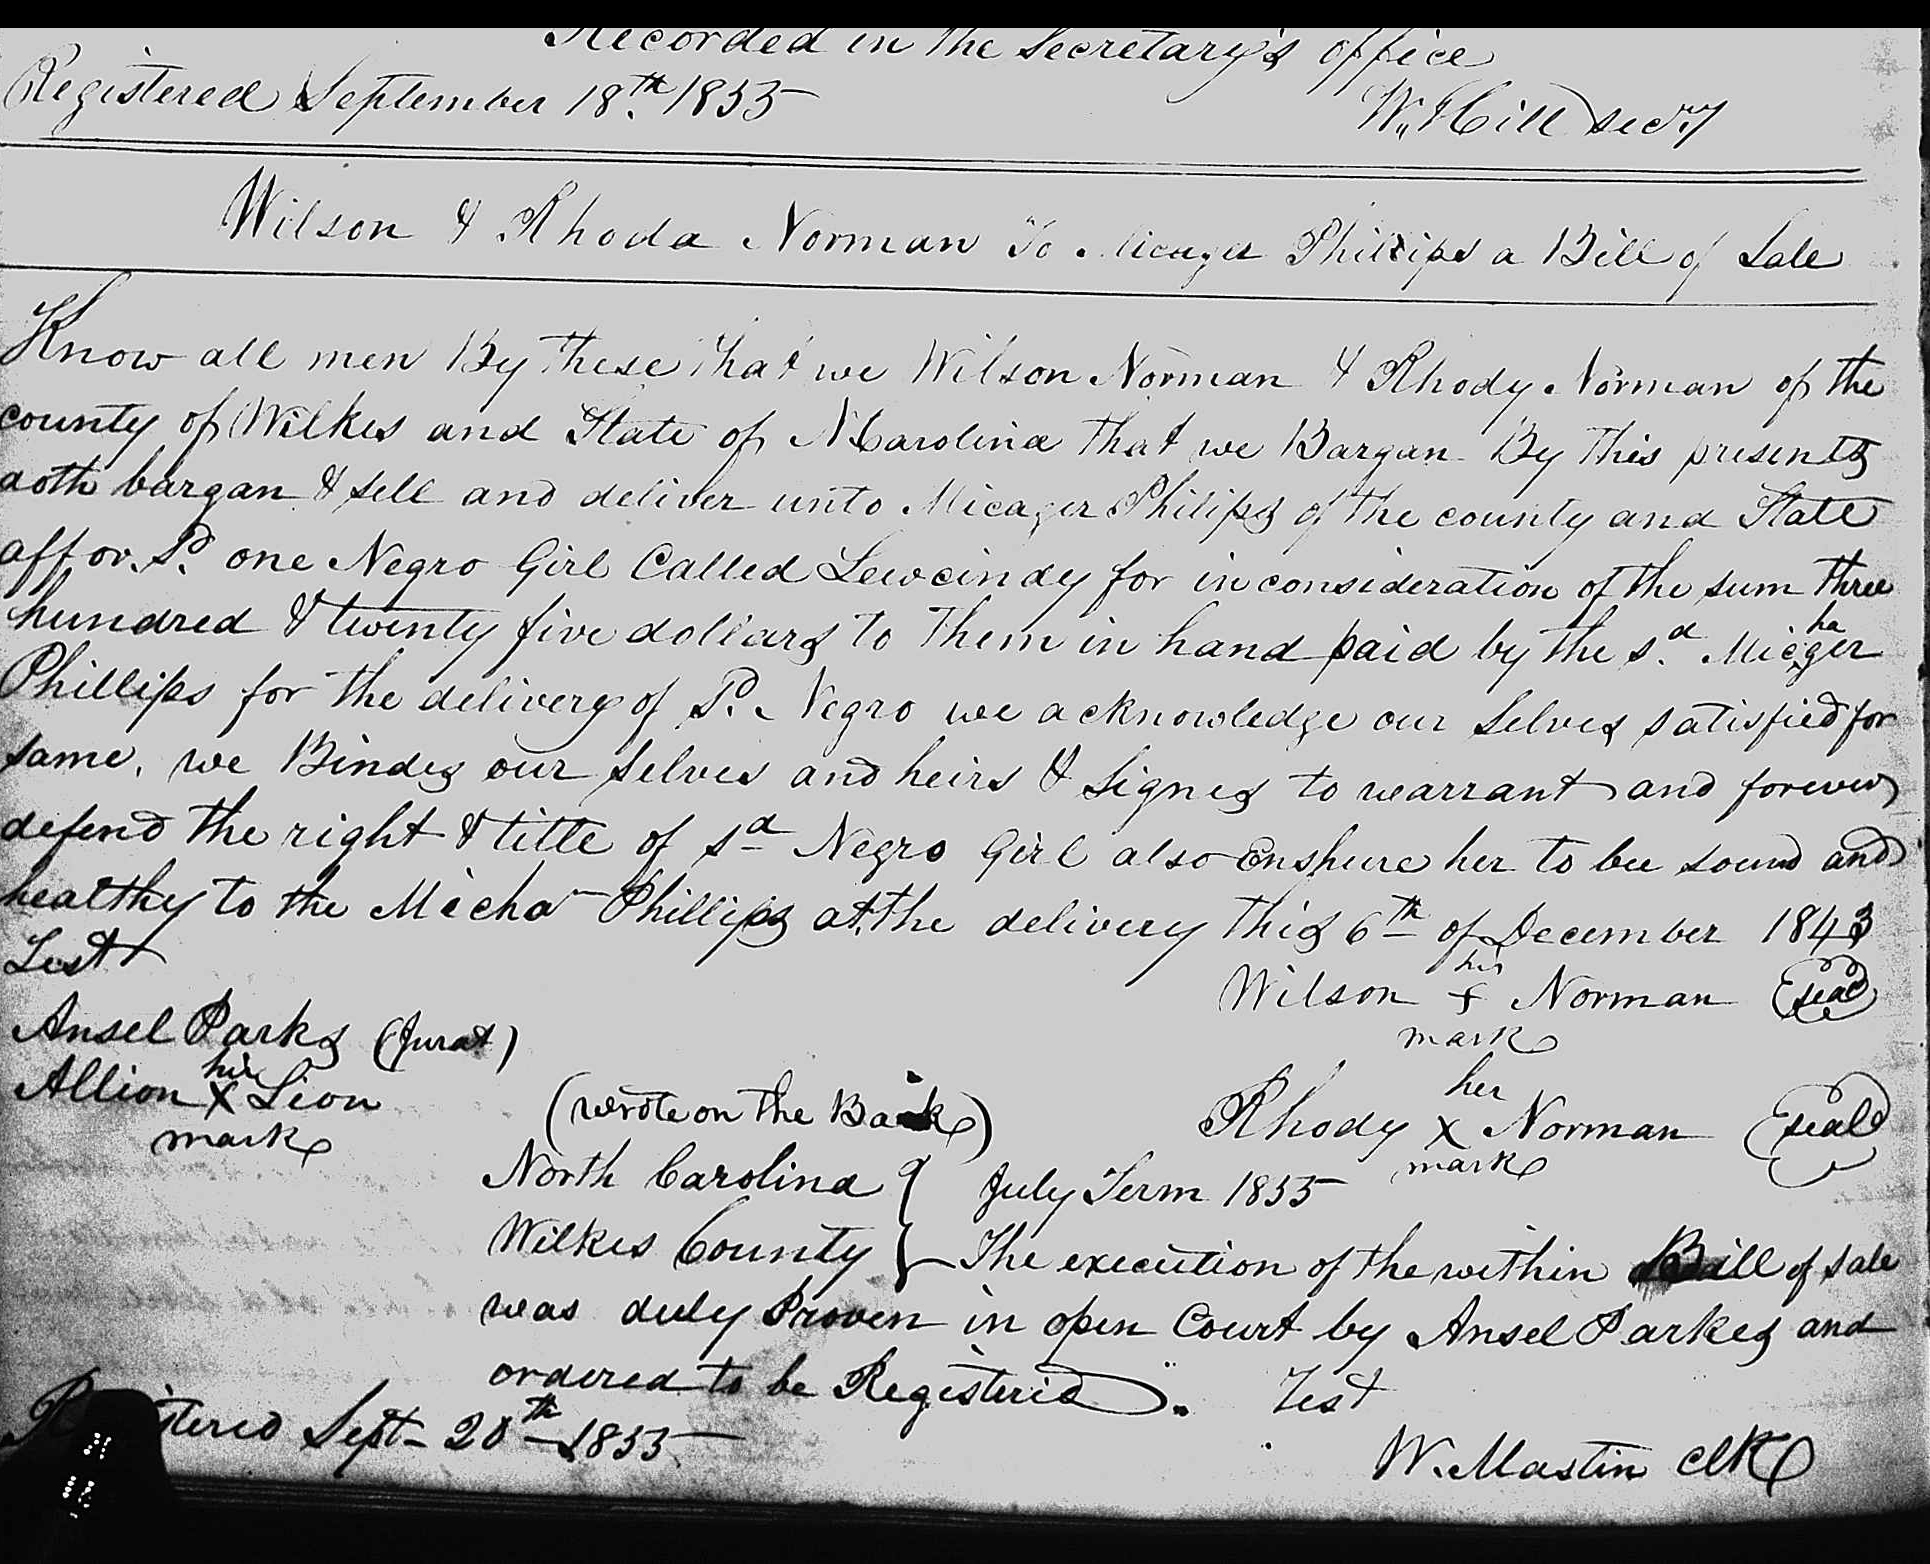 Recorded in the Secretary's office
Registered September 18th. 1855
W. Hill Secry
Wilson & Rhoda Norman To Micager Phillips a Bill of Sale
Know all men By these that we Wilson Norman & Rhody Norman of the
county of Wilkes and State of N Carolina that we Bargan By this presents
doth bargan & sell and deliver unto Micager Philips of the county and State
affor.Sd. one Negro Girl Called Lewcindy for in consideration of the sum three
hundred & twenty five dollars to Them in hand paid by the sd. Michager
Phillips for the delivery of Sd. Negro we acknowledge our selves satisfied for
same, we Bindes our selves and heirs & signes to warrant and forever
defend the right & title of sd Negro Girl also Enshure her to bee sound and
healthy to the Micha Phillips at the delivery this 6th of December 1843
Test
Wilson his + mark Norman (seal)
Ansel Parks (Jurat)
Allion his x mark Lion
Rhody her x mark Norman (seal)
(wrote on the Back)
North Carolina } July Term 1855
Wilkes County } The execution of the within Bill of sale
was duly Proven in open Court by Ansel Parkes and
ordered to be Registerid. Test
Registered Sept 20th 1855
W. Mastin clk